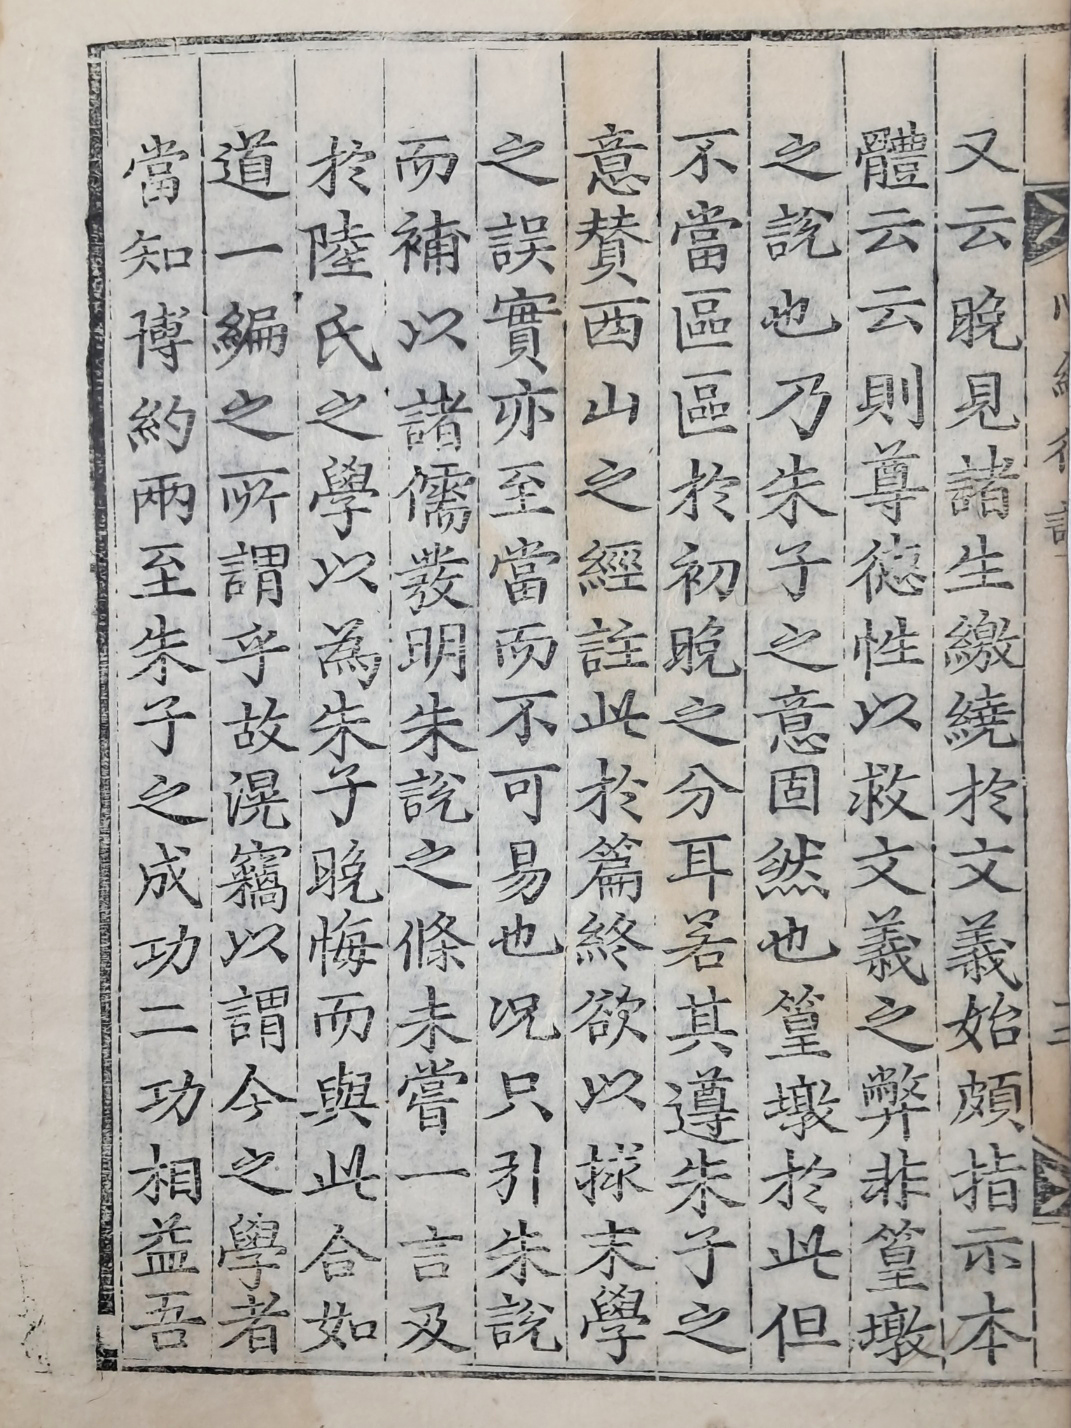 又云晚見諸生繳繞於文義始頗指示本
體云云則尊德性以救文義之弊非篁墩
之說也乃朱子之意固然也篁墩於此但
不當區區於初晚之分耳若其遵朱子之
意賛西山之經註此於篇終欲以捄末學
之誤實亦至當而不可易也况只引朱說
而補以諸儒發明朱說之條未嘗一言及
於陸氏之學以為朱子晚悔而與此合如
道一編之所謂乎故滉竊以謂今之學者
當知博約兩至朱子之成功二功相益吾
心經後論
二